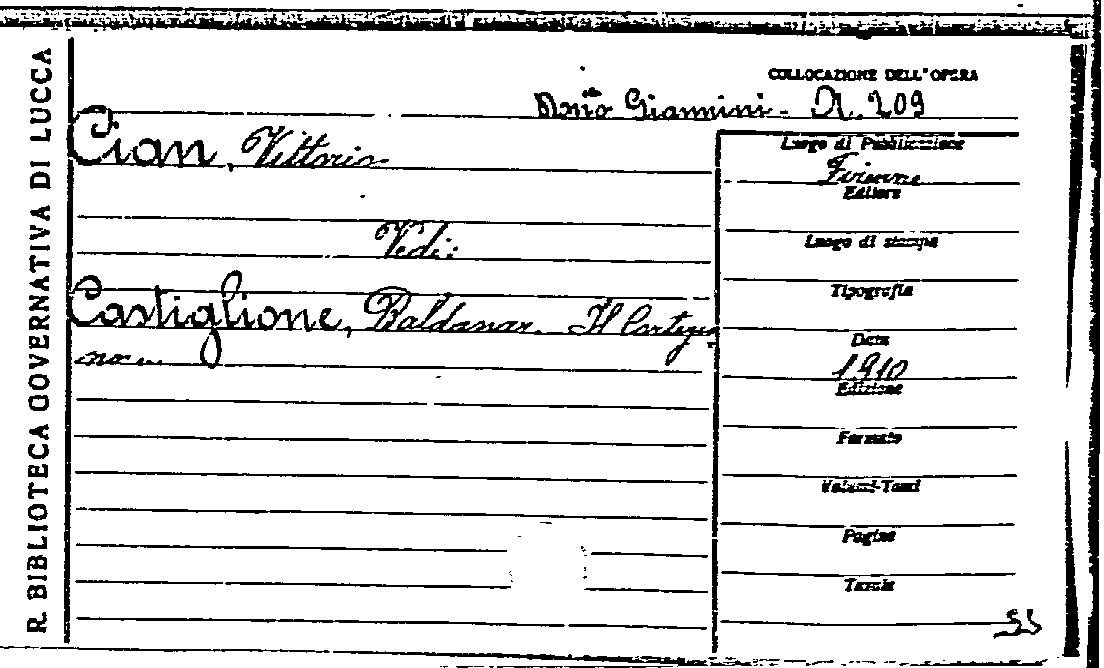 R. BIBLIOTECA GOVERNATIVA DI LUCCA
COLLOCAZIONE DELL'OPERA
Giannini - A. 209
Cian, Vittorio
Vedi:
Castiglione, Baldassar. Il Cortegia
no...
Luogo di Pubblicazione
Firenze
Editore
Luogo di stampa
Tipografia
Data
1910
Edizione
Formato
Volumi-Tomi
Pagine
Tavole